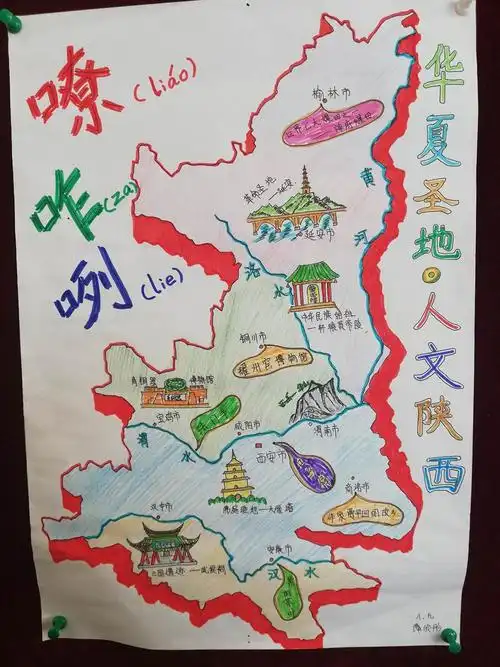 嘹(liáo)
咋(za)
咧(lie)
华夏圣地·人文陕西
榆林市
黄河
革命圣地
—延安
延安市
洛水
中华民族始祖
—轩辕黄帝陵
铜川市
耀州窑博物馆
青铜器博物馆
宝鸡市
咸阳市
渭南市
渭水
西安市
商洛市
汉中市
三国遗迹—武侯祠
安康市
汉水